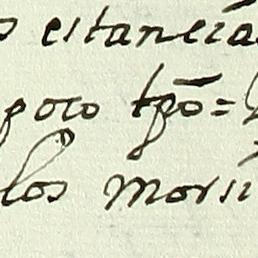 s estancia
poco tpō=
los morsi